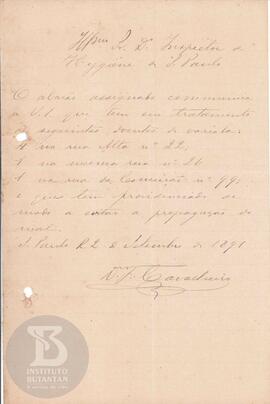 Illmo Sr. Dr. Inspector de
Hygiene de S. Paulo
O abaixo assignado communica
a V.S. que tem em tratamento
os seguintes doentes de variola:
4 na rua Alta nº 22,
1 na mesma rua nº 26
1 na rua da Conceição nº 99;
e que tem providenciado de
modo a evitar a propagação do
mal.
S. Paulo 22 de Setembro de 1891
Cavalheiro
INSTITUTO
BUTANTAN
A serviço da vida